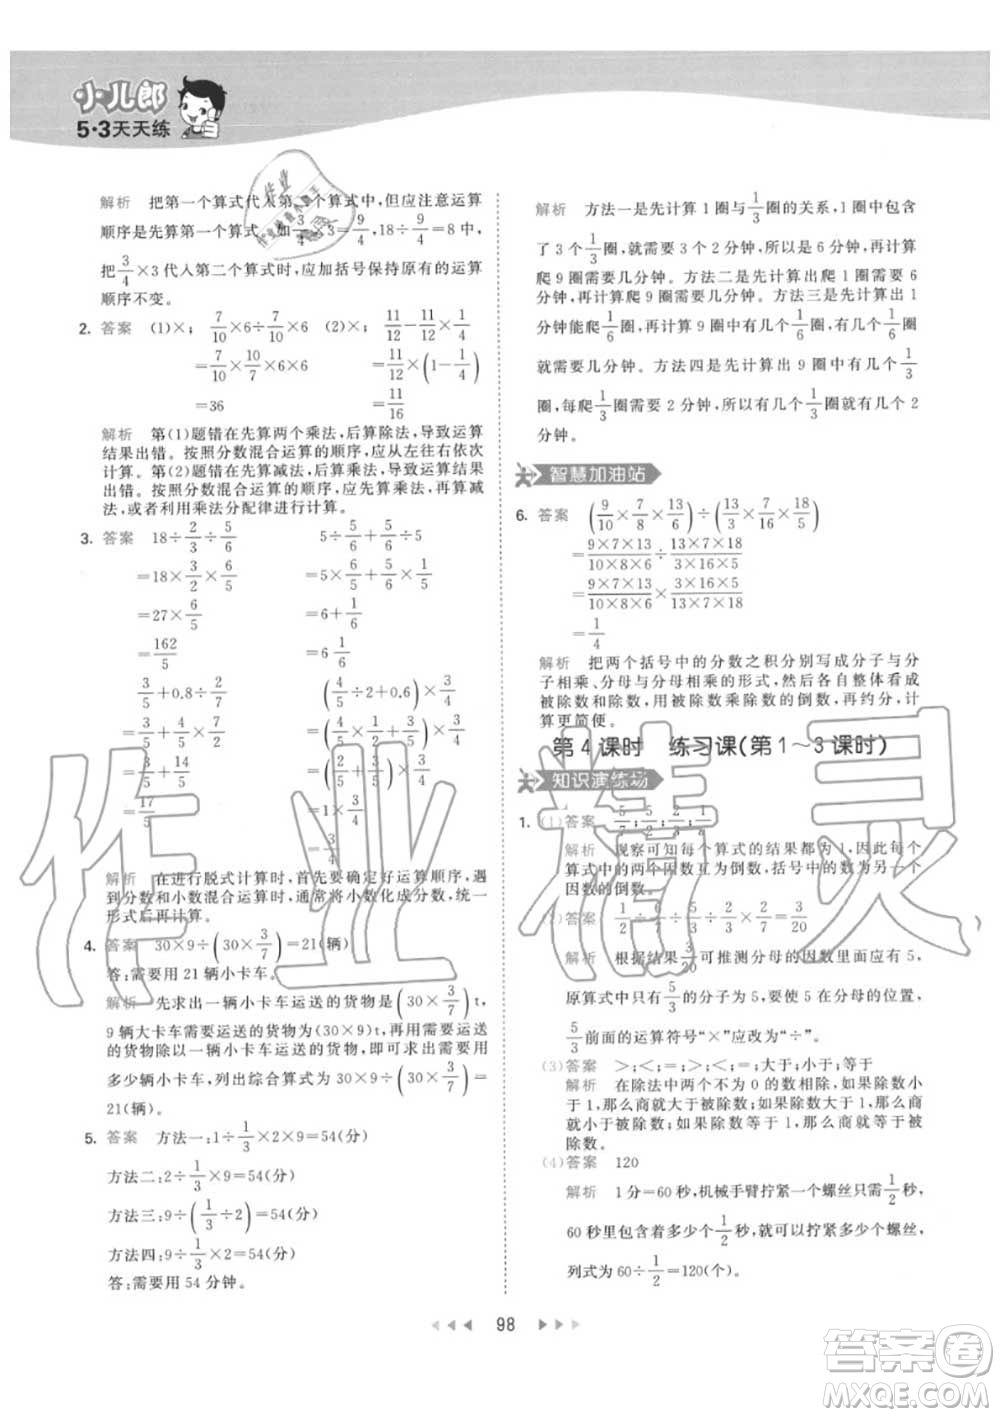 小儿郎
5·3天天练
解析 把第一个算式代入第二个算式中,但应注意运算
顺序是先算第一个算式。如3/4×3=9/4,18÷9/4=8中,
把3/4×3代入第二个算式时,应加括号保持原有的运算
顺序不变。
2. 答案 (1)×; 7/10×6÷7/10×6 (2)×; 11/12-11/12×1/4
=7/10×10/7×6×6 =11/12×(1-1/4)
=36 =11/16
解析 第(1)题错在先算两个乘法,后算除法,导致运算
结果出错。按照分数混合运算的顺序,应从左往右依次
计算。第(2)题错在先算减法,后算乘法,导致运算结果
出错。按照分数混合运算的顺序,应先算乘法,再算减
法,或者利用乘法分配律进行计算。
3. 答案 18÷2/3÷5/6 5÷5/6+5/6÷5
=18×3/2×6/5 =5×6/5+5/6×1/5
=27×6/5 =6+1/6
=162/5 =6 1/6
3/5+0.8÷2/5 (4/5÷2+0.6)×3/4
=3/5+4/5×5/2 =(4/5×1/2+3/5)×3/4
=3/5+2 =(2/5+3/5)×3/4
=13/5 =1×3/4
=3/4
解析 在进行脱式计算时,首先要确定好运算顺序,遇
到分数和小数混合运算时,通常将小数化成分数,统一
形式后再计算。
4. 答案 30×9÷(30×3/7)=21(辆)
答:需要用 21 辆小卡车。
解析 先求出一辆小卡车运送的货物是(30×3/7)t,
9 辆大卡车需要运送的货物为(30×9)t,再用需要运送
的货物除以一辆小卡车运送的货物,即可求出需要用
多少辆小卡车,列出综合算式为 30×9÷(30×3/7)=
21(辆)。
5. 答案 方法一:1÷1/3×2×9=54(分)
方法二:2÷1/3×9=54(分)
方法三:9÷(1/3÷2)=54(分)
方法四:9÷1/3×2=54(分)
答:需要用 54 分钟。
解析 方法一是先计算 1 圈与1/3圈的关系,1 圈中包含
了 3 个1/3圈,也就需要 3 个 2 分钟,所以是 6 分钟,再计算
爬 9 圈需要几分钟。方法二是先计算出爬 1 圈需要几
分钟,再计算爬 9 圈需要几分钟。方法三是先计算出 1
分钟能爬1/6圈,再计算 9 圈中有几个1/6圈,有几个1/6圈
就需要几分钟。方法四是先计算出 9 圈中有几个1/3
圈,每爬1/3圈需要 2 分钟,所以有几个1/3圈就有几个 2
分钟。
智慧加油站
6. 答案 (9/10×7/8×13/6)÷(13/3×7/16×5/18)
=9×7×13/10×8×6÷13×7×5/3×16×18
=9×7×13/10×8×6×3×16×18/13×7×5
解析 把两个括号中的分数之积分别写成分子与分
子相乘、分母与分母相乘的形式,然后各自整体看成
被除数和除数,用被除数乘除数的倒数,再约分,计
算更简便。
第 4 课时 练习课(第 1~3 课时)
知识演练场
1. (1)答案 5/7;5/2;2/3;1/8
解析 观察可知每个算式的结果都为 1,因此每个
算式中的两个因数互为倒数,括号中的数为另一个
因数的倒数。
(2)答案 1/2÷5/3÷2/7=3/20
解析 根据结果3/20可推测分母中的5是分母的,
原算式中只有5/3的分子为 5,要使 5 在分母的位置,
5/3前面的运算符号“×”应改为“÷”。
(3)答案 >;<;=;>;<;=;大于;小于;等于
解析 在除法中两个不为 0 的数相除,如果除数小
于 1,那么商就大于被除数;如果除数大于 1,那么商
就小于被除数;如果除数等于 1,那么商就等于被
除数。
(4)答案 120
解析 1 分=60 秒,机械手臂拧紧一个螺丝只需1/2秒,
60 秒里包含着多少个1/2秒,就可以拧紧多少个螺丝,
列式为 60÷1/2=120(个)。
98
作业精灵
答案圈
MXQE.COM